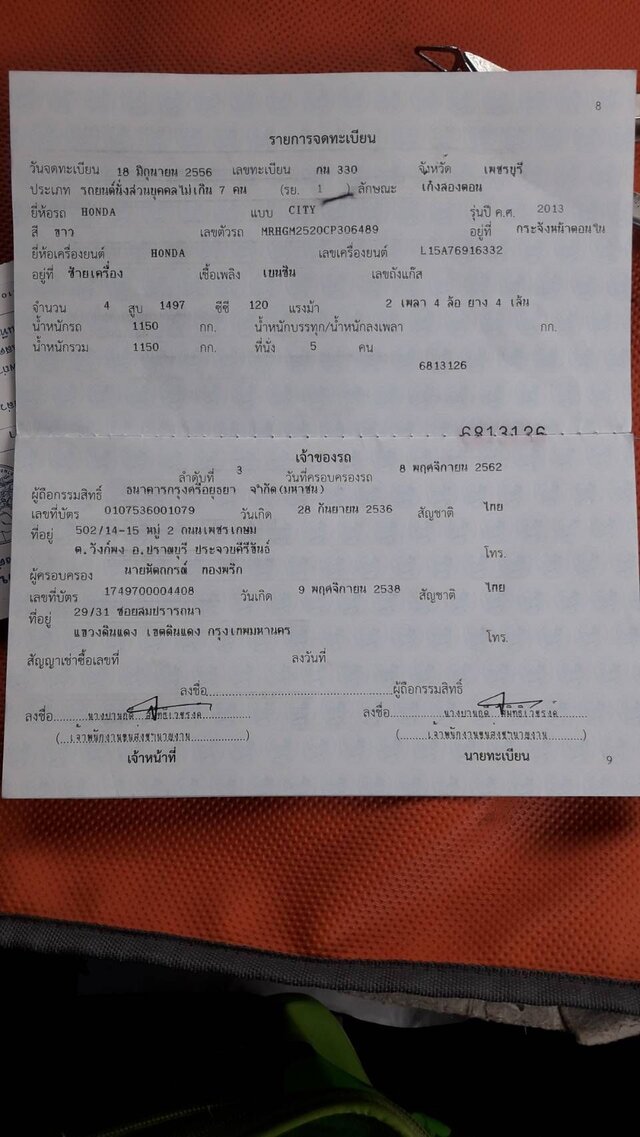 8
รายการจดทะเบียน
วันจดทะเบียน 18 มิถุนายน 2556 เลขทะเบียน กน 330 จังหวัด เพชรบุรี
ประเภท รถยนต์นั่งส่วนบุคคลไม่เกิน 7 คน (รย. 1 ) ลักษณะ เก๋งสองตอน
ยี่ห้อรถ HONDA แบบ CITY รุ่นปี ค.ศ. 2013
สี ขาว เลขตัวรถ MRHGM2520CP306489 อยู่ที่ กระจังหน้าตอนใน
ยี่ห้อเครื่องยนต์ HONDA เลขเครื่องยนต์ L15A76916332
อยู่ที่ ซ้ายเครื่อง เชื้อเพลิง เบนซิน เลขถังแก๊ส
จำนวน 4 สูบ 1497 ซีซี 120 แรงม้า 2 เพลา 4 ล้อ ยาง 4 เส้น
น้ำหนักรถ 1150 กก. น้ำหนักบรรทุก/น้ำหนักลงเพลา กก.
น้ำหนักรวม 1150 กก. ที่นั่ง 5 คน
6813126
6813126
เจ้าของรถ
ลำดับที่ 3 วันที่ครอบครองรถ 8 พฤศจิกายน 2562
ผู้ถือกรรมสิทธิ์ ธนาคารกรุงศรีอยุธยา จำกัด(มหาชน)
เลขที่บัตร 0107536001079 วันเกิด 28 กันยายน 2536 สัญชาติ ไทย
ที่อยู่ 502/14-15 หมู่ 2 ถนนเพชรเกษม
ต.วังก์พง อ.ปราณบุรี ประจวบคีรีขันธ์ โทร.
ผู้ครอบครอง นายหัตถกรณ์ ทองพริก
เลขที่บัตร 1749700004408 วันเกิด 9 พฤศจิกายน 2538 สัญชาติ ไทย
ที่อยู่ 29/31 ซอยสมปรารถนา
แขวงดินแดง เขตดินแดง กรุงเทพมหานคร โทร.
สัญญาเช่าซื้อเลขที่ ลงวันที่
ลงชื่อ ผู้ถือกรรมสิทธิ์
ลงชื่อ ลงชื่อ
(เจ้าพนักงานขนส่งชำนาญงาน) (เจ้าพนักงานขนส่งชำนาญงาน)
เจ้าหน้าที่ นายทะเบียน
9